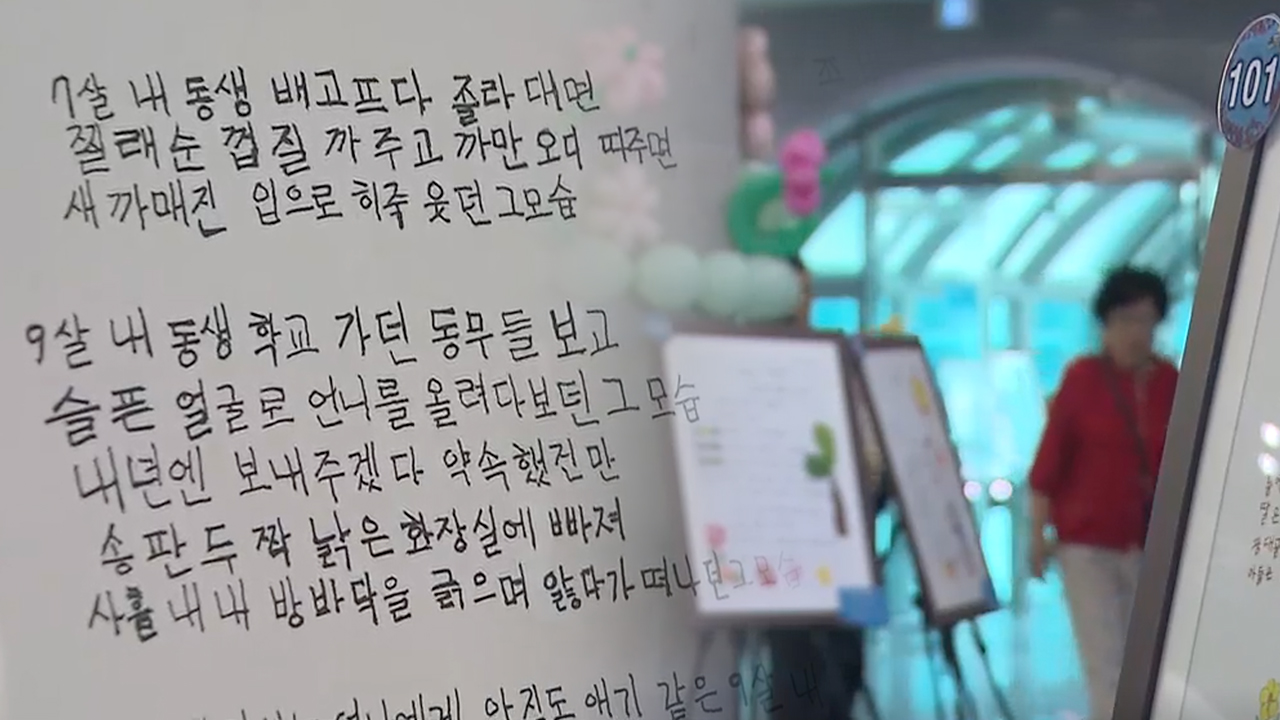 7살 내 동생 배고프다 졸라 대면
찔래순 껍질 까주고 까만 오디 따주면
새까매진 입으로 히죽 웃던 그모습
9살 내 동생 학교 가던 동무들 보고
슬픈 얼굴로 언니를 올려다보던 그 모습
내년엔 보내주겠다 약속했건만
송판 두 짝 낡은 화장실에 빠져
사흘 내내 방바닥을 긁으며 앓다가 떠나던 그 모습
언니에게 아직도 애기 같은 9살 내
101